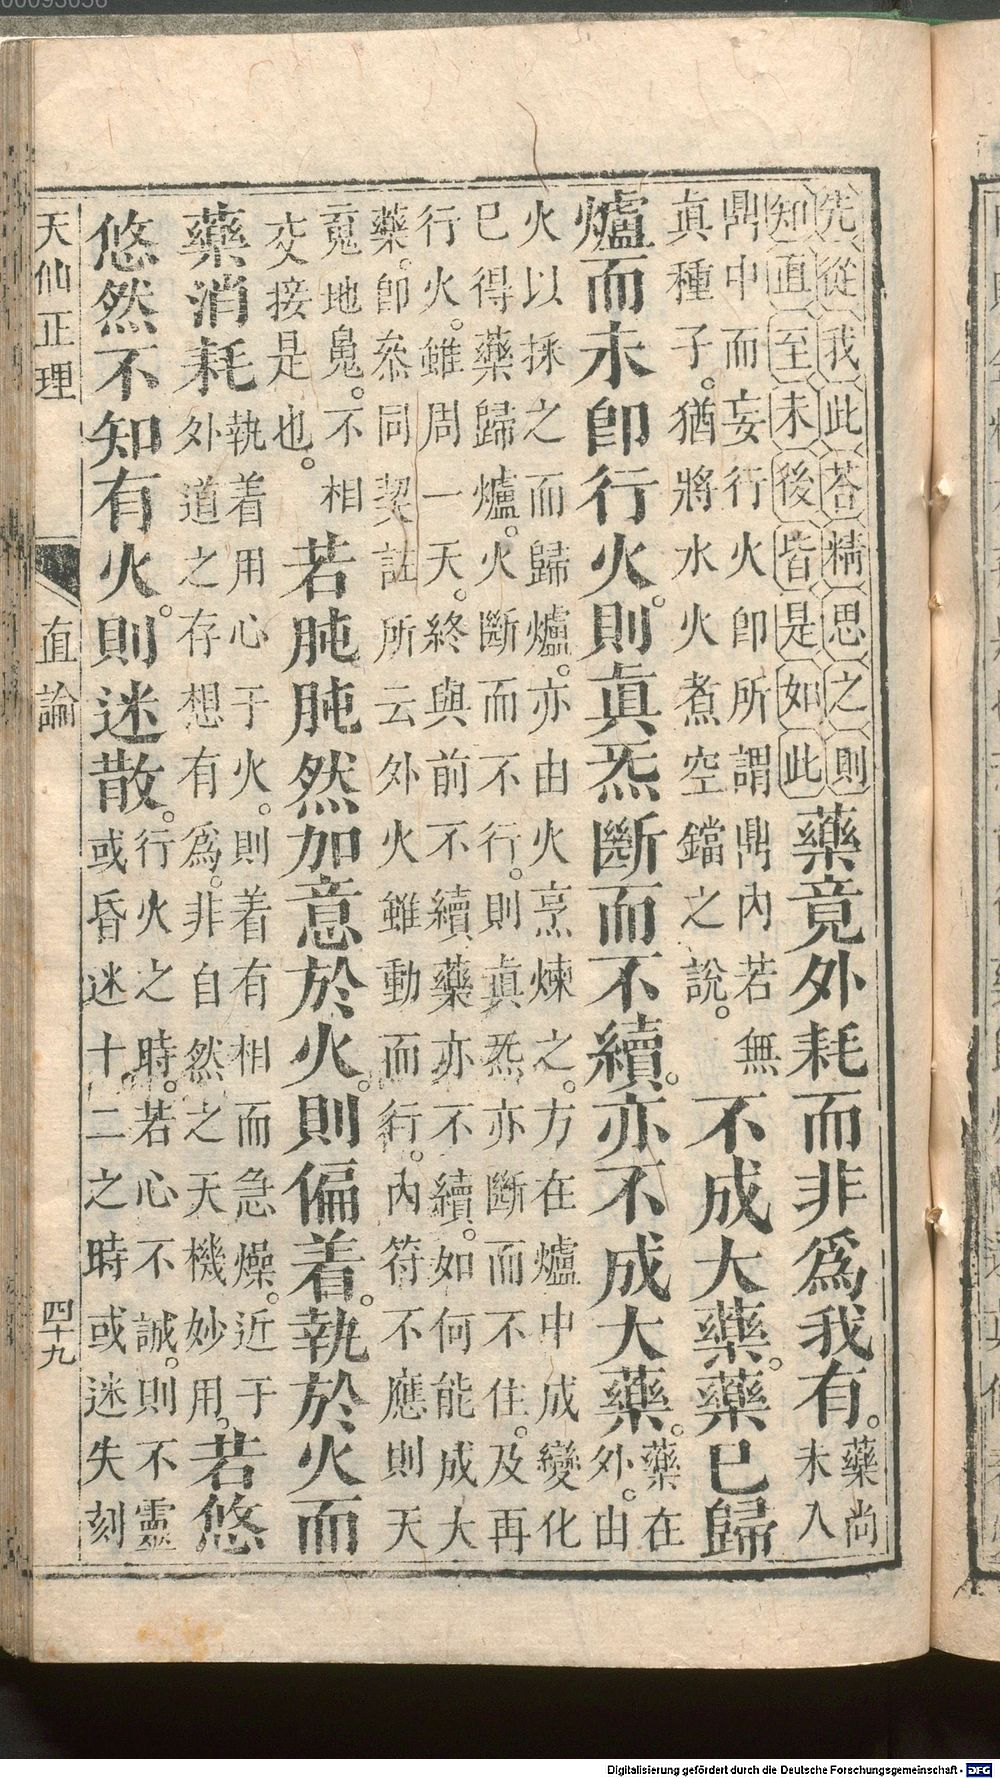 先從我此荅精思之則
知直至末後皆是如此
藥竟外耗而非爲我有。
藥尚
未入
鼎中而妄行火卽所謂鼎內若無
眞種子。猶將水火煮空鐺之說。
不成大藥。藥已歸
爐而未卽行火。則眞炁斷而不續。亦不成大藥。
藥在
外。由
火以採之而歸爐。亦由火烹煉之。方在爐中成變化
已得藥歸爐。火斷而不行。則眞炁亦斷而不住。及再
行火。雖周一天。終與前不續。藥亦不續。如何能成大
藥。卽叅同契註所云外火雖動而行。內符不應則天
魂地魄。不相
交接是也。
若肫肫然加意於火。則偏着。執於火而
藥消耗
執着用心于火。則着有相而急燥。近于
外道之存想有爲。非自然之天機妙用。
若悠
悠然不知有火。則迷散。
行火之時。若心不誠。則不靈
或昏迷十二之時或迷失刻
天仙正理
直論
四十九
00093056
Digitalisierung gefördert durch die Deutsche Forschungsgemeinschaft - DFG